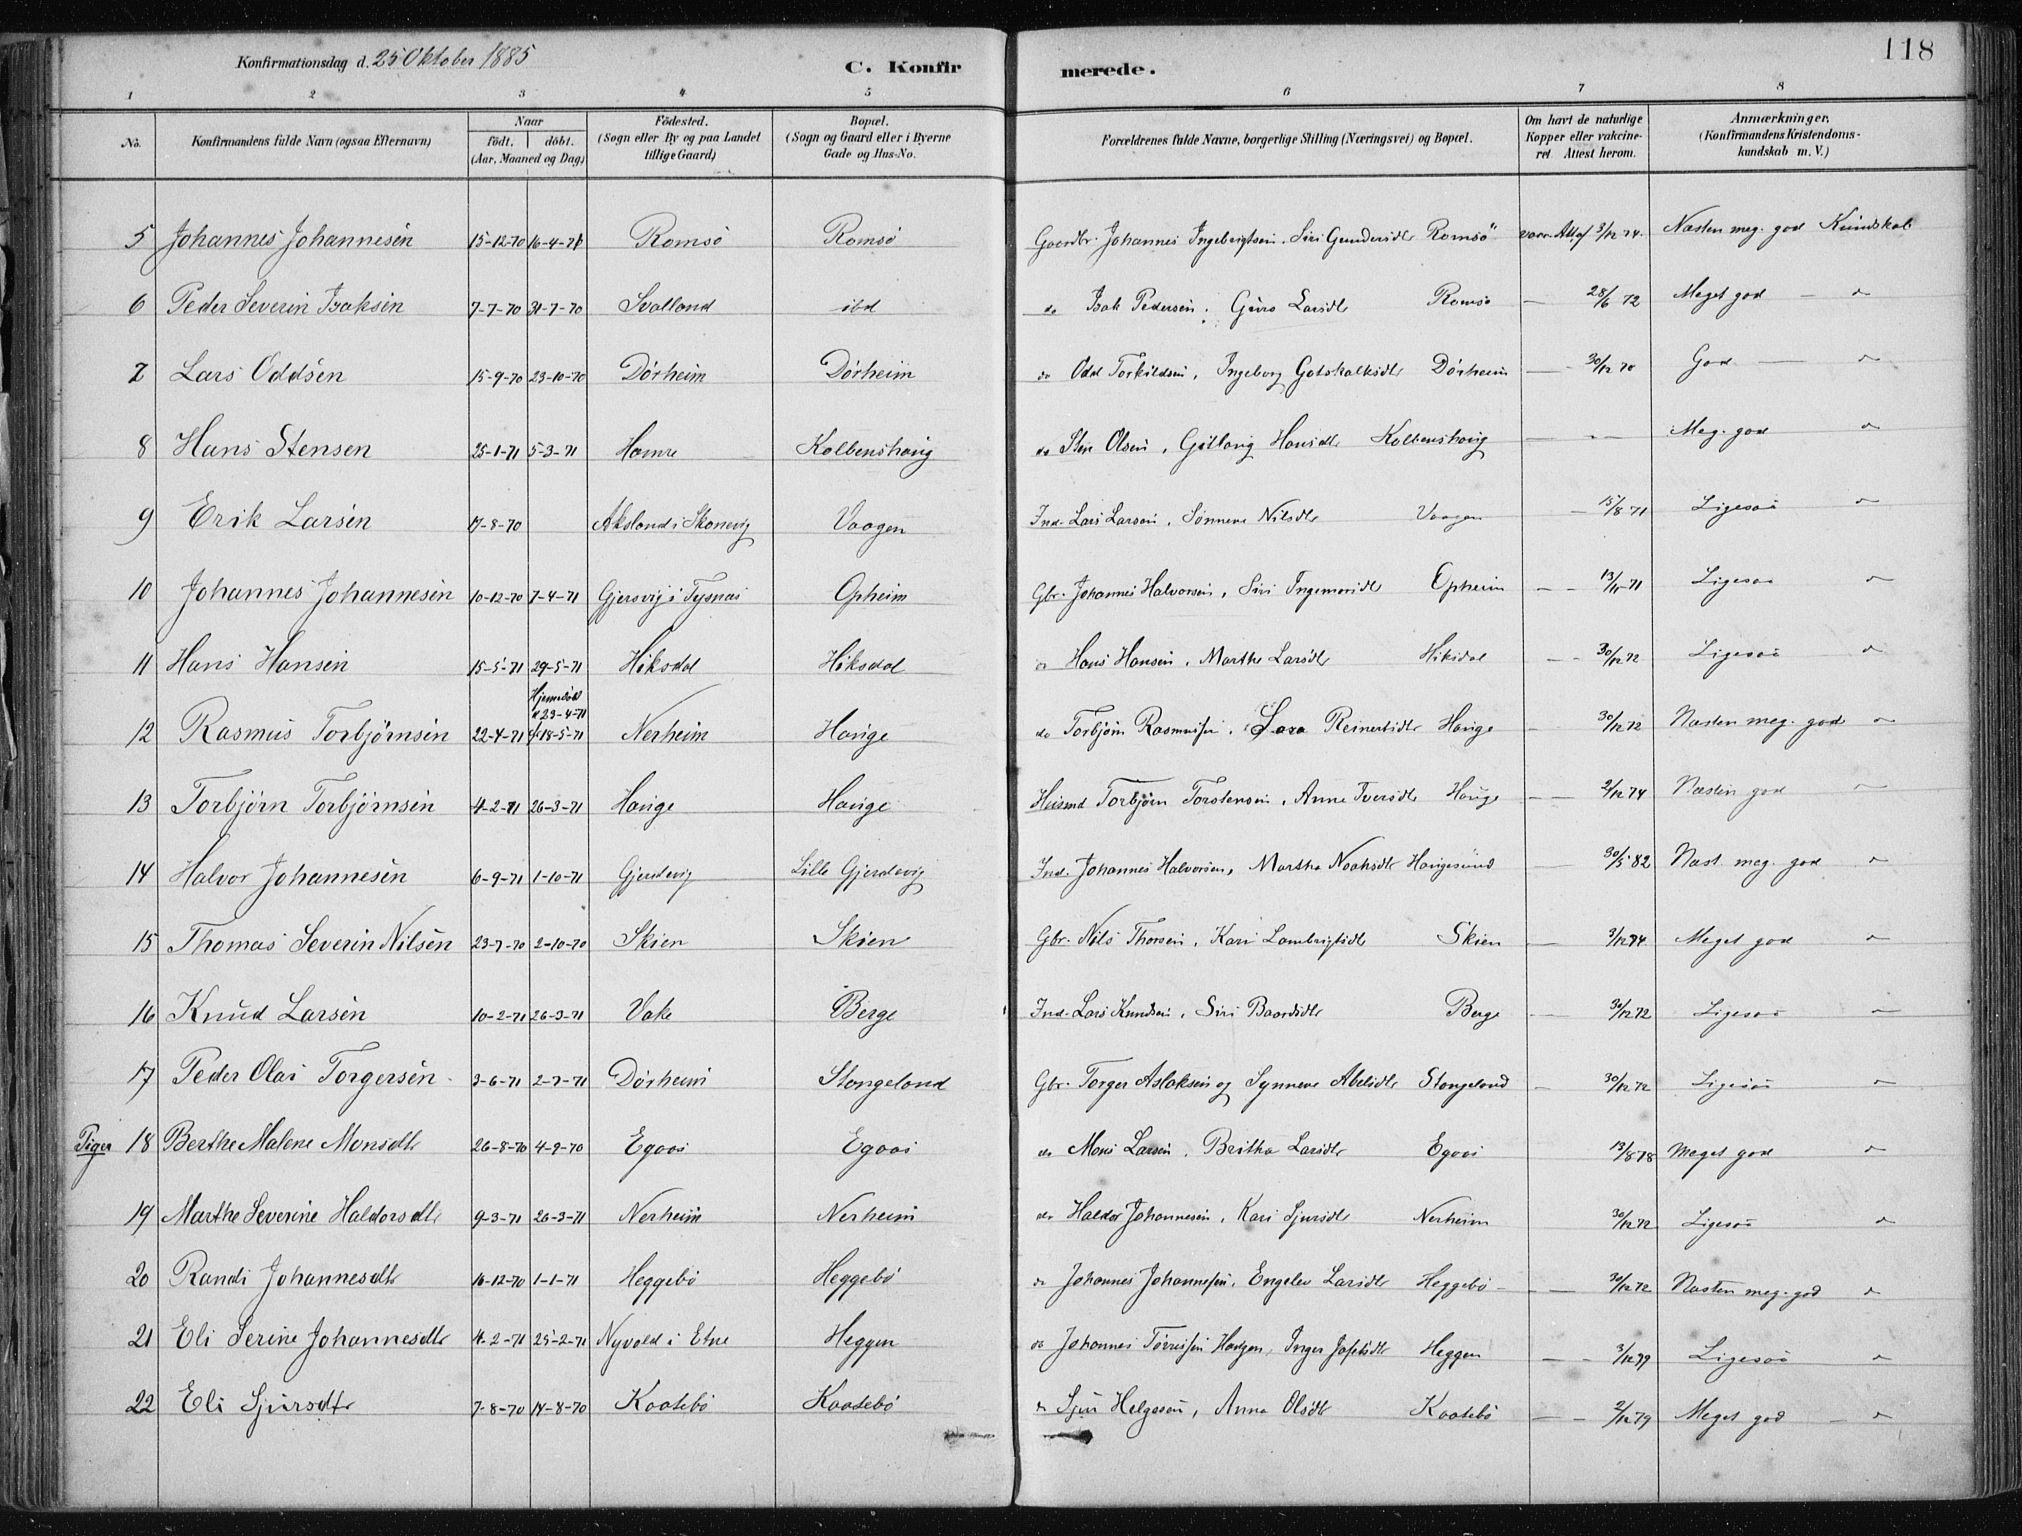 118
Konfirmationsdag d. 25 Oktober 1885 C. Konfirmerede.
1 2 3 4 5 6 7 8
No. Konfirmandens fulde Navn (ogsaa Efternavn) Naar født. døbt. (Aar, Maaned og Dag) Fødested. (Sogn eller By og paa Landet tillige Gaard) Bopæl. (Sogn og Gaard eller i Byerne Gade og Hus-No. Forældrenes fulde Navne, borgerlige Stilling (Næringsvei) og Bopæl. Om havt de naturlige Kopper eller vakcineret. Attest herom. Anmærkninger. (Konfirmandens Kristendomskundskab m. V.)
5 Johannes Johannesen 15-12-70 16-4-71 Romsø Romsø Gaardbr. Johannes Ingebrigtsen. Siri Gundersdtr Romsø vacc. Att. af 3/12 74. Næsten meg. god Kundskab
6 Peder Severin Isaksen 7-7-70 31-7-70 Svalland ibd do Isak Pedersen. Guro Larsdtr Romsø — 28/6 72 Meget god — "
7 Lars Oddsen 15-9-70 23-10-70 Dørheim Dørheim do Odd Torkildsen, Ingeborg Gotskalksdtr Dørheim — 30/12 70 God — "
8 Hans Stensen 25-1-71 5-3-71 Hamre Kolbenshaug do Sten Olsen, Gitlaug Hansdtr Kolbenshaug — - - Meg. god "
9 Erik Larsen 17-8-70 Aksland i Skonevig Vaagen Ind. Lars Larsen, Sønneva Nilsdtr Vaagen - 15/8 71 Ligesaa "
10 Johannes Johannesen 10-12-70 7-4-71 Gjersvig i Tysnæs Opheim Gbr. Johannes Halvorsen, Siri Ingemorsdtr Opheim - - 13/11 71 Ligesaa "
11 Hans Hansen 15-5-71 29-5-71 Hiksdal Hiksdal " Hans Hansen, Marthe Larsdtr Hiksdal - - 30/12 72 Ligesaa "
12 Rasmus Torbjørnsen 22-4-71 Hjemmedøbt 23-4-71 18-5-71 Nerheim Hauge do Torbjørn Rasmussen, Sara Reinertsdtr Hauge - 30/12 72 Næsten meg. god "
13 Torbjørn Torbjørnsen 4-2-71 26-3-71 Hauge Hauge Husmd Torbjørn Torstensen, Anna Iversdtr Hauge - - 2/12 74 Næsten god "
14 Halvor Johannesen 6-9-71 1-10-71 Gjerdevig Lille Gjerdevig Ind. Johannes Halvorsen, Martha Noahsdtr Haugesund — 30/5 82 Næst. meg. god "
15 Thomas Severin Nilsen 23-7-70 2-10-70 Skien Skien Gbr. Nils Thorsen, Kari Lambrigtsdtr Skien — 3/12 74 Meget god "
16 Knud Larsen 10-2-71 26-3-71 Vake Berge Ind. Lars Knudsen, Siri Baardsdtr Berge — 30/12 72 Ligesaa "
17 Peder Olai Torgersen 3-6-71 2-7-71 Dørheim Stangeland Gbr. Torger Aslaksen og Synneve Abelsdtr Stangeland - 30/12 72 Ligesaa "
Piger 18 Berthe Malene Monsdtr 26-8-70 4-9-70 Egaas Egaas do Mons Larsen, Britha Larsdtr Egaas 13/8 78 Meget god "
19 Marthe Severine Haldorsdtr 9-3-71 26-3-71 Nerheim Nerheim do Haldor Johannesen, Kari Sjursdtr Nerheim 30/12 72 Ligesaa "
20 Randi Johannesdtr 16-12-70 1-1-71 Heggebø Heggebø do Johannes Johannesen, Engelev Larsdtr Heggebø - - 30/12 72 Næsten meg. god "
21 Eli Serine Johannesdtr 4-2-71 25-2-71 Nyvold i Etne Heggen do Johannes Tørrissen, Inger Heggen — - 3/12 79 Ligesaa "
22 Eli Sjursdtr 7-8-70 14-8-70 Kaatebø Kaatebø " Sjur Helgesen, Anna Olsdtr Kaatebø — - 2/12 79 Meget god - "